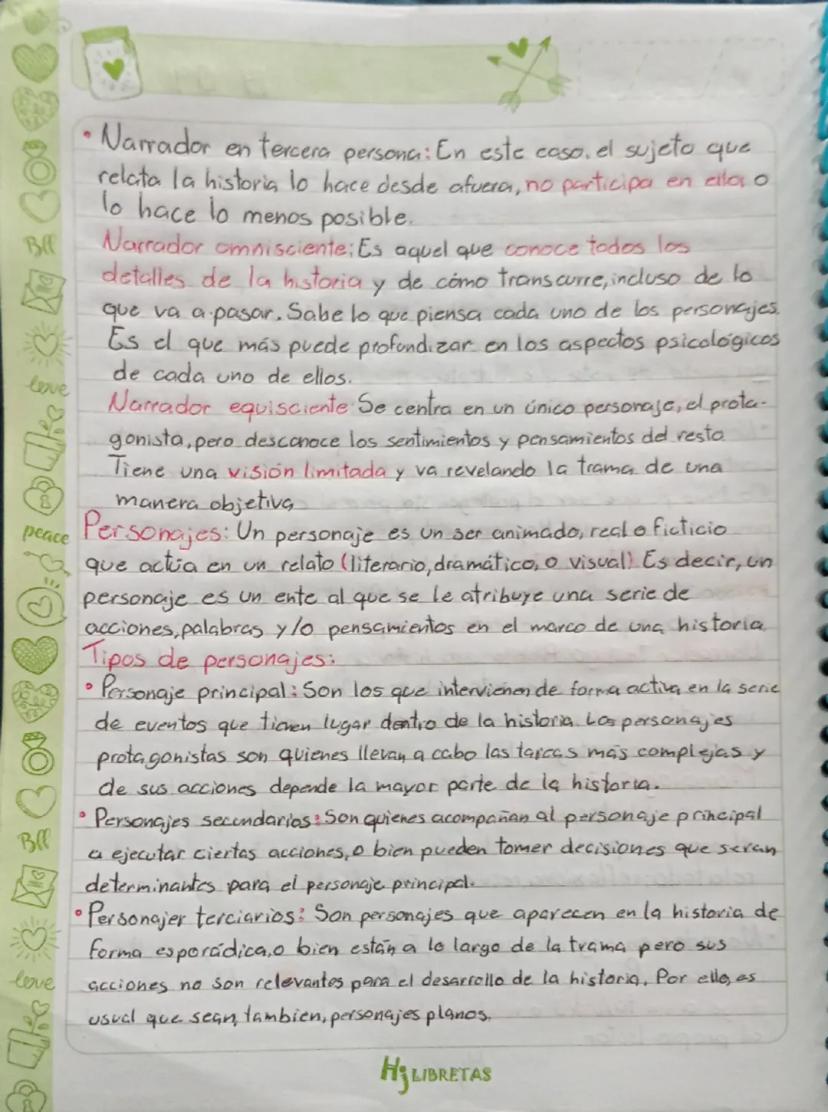 • Narrador en tercera persona: En este caso, el sujeto que
relata la historia lo hace desde afuera, no participa en ella o
lo hace lo menos posible.
Narrador omnisciente: Es aquel que conoce todos los
detalles de la historia y de cómo transcurre, incluso de lo
que va a pasar. Sabe lo que piensa cada uno de los personajes.
Es el que más puede profundizar en los aspectos psicológicos
de cada uno de ellos.
Narrador equisciente: Se centra en un único personaje, el prota-
gonista, pero desconoce los sentimientos y pensamientos del resto
Tiene una visión limitada y va revelando la trama de una
manera objetiva
Personajes: Un personaje es un ser animado, real o ficticio
que actúa en un relato (literario, dramático, o visual) Es decir, un
personaje es un ente al que se le atribuye una serie de
acciones, palabras y/o pensamientos en el marco de una historia
Tipos de personajes:
• Personaje principal: Son los que intervienen de forma activa en la serie
de eventos que tienen lugar dentro de la historia. Los personajes
protagonistas son quienes llevan a cabo las tareas más complejas y
de sus acciones depende la mayor parte de la historia.
• Personajes secundarios: Son quienes acompañan al personaje principal
a ejecutar ciertas acciones, o bien pueden tomar decisiones que seran
determinantes para el personaje principal.
• Personajer terciarios: Son personajes que aparecen en la historia de
forma esporádica, o bien están a lo largo de la trama pero sus
acciones no son relevantes para el desarrollo de la historia. Por ello, es
usual que sean, tambien, personajes planos.
BFF
love
peace
BFF
love
Hj LIBRETAS